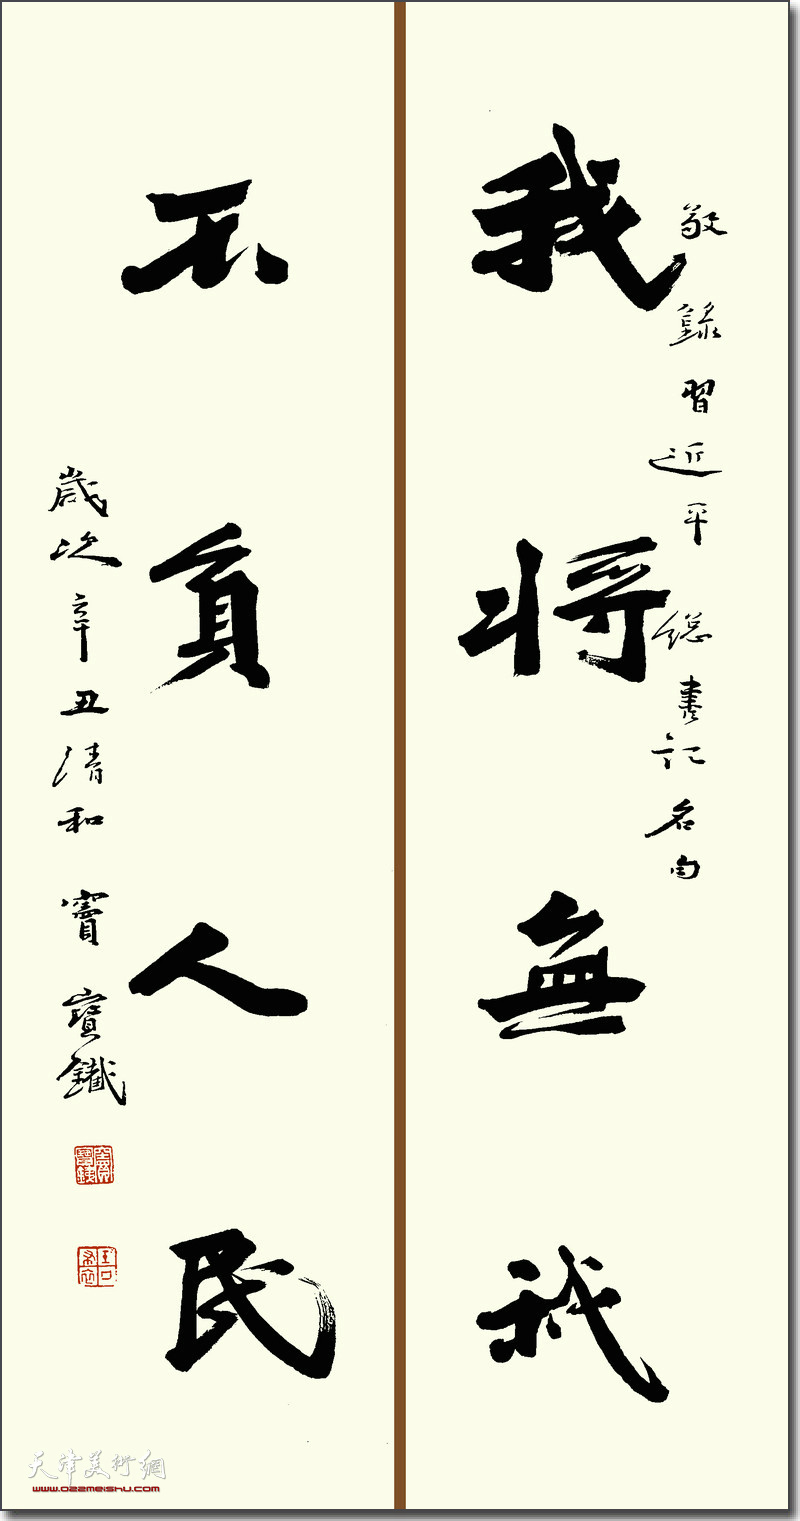 敬錄習近平總書記名句
我將無我
不負人民
歲次辛丑清和 竇寶鐵
天津美術網
www.022meishu.com